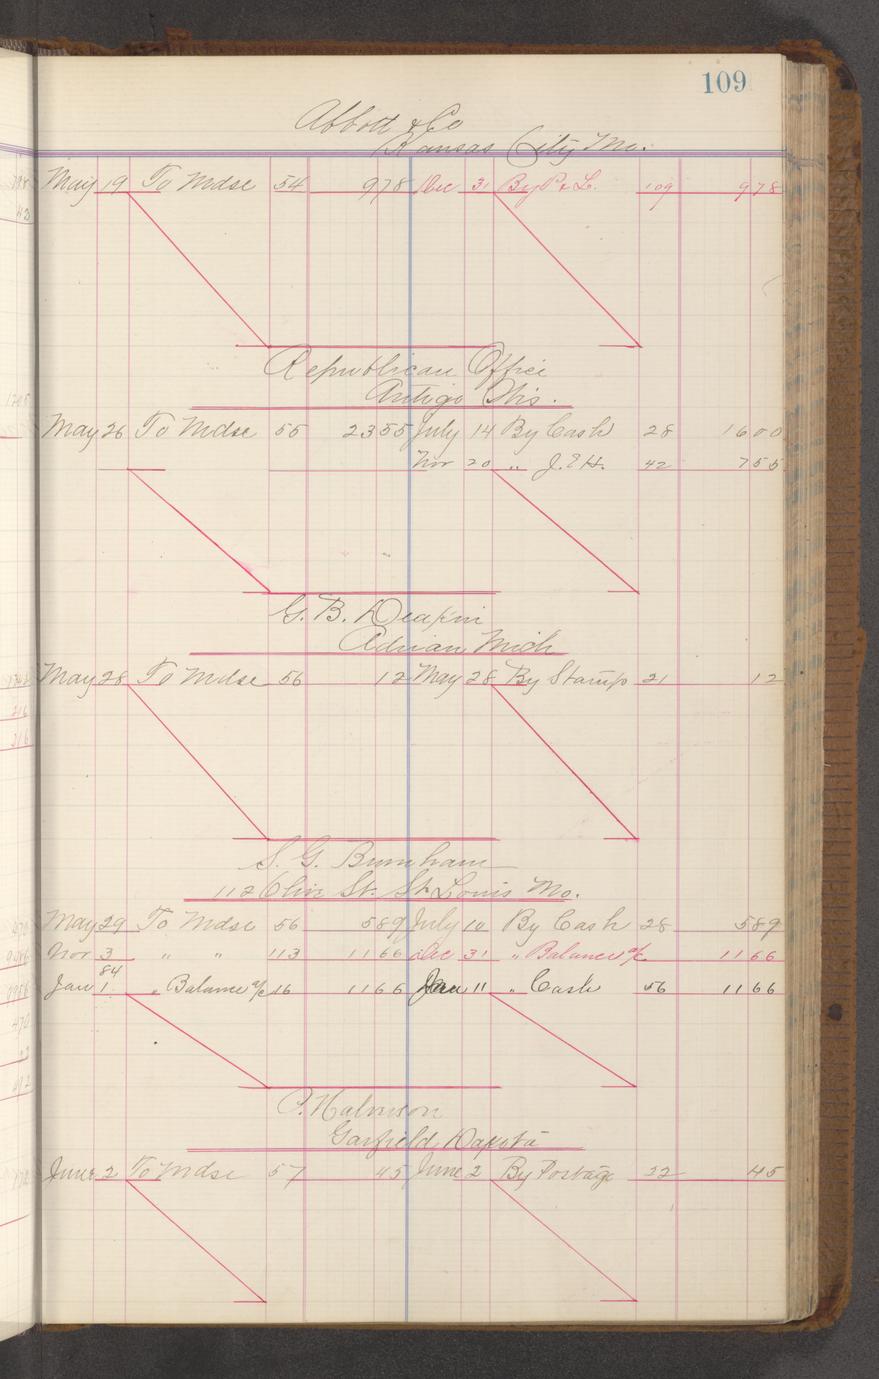 109
Abbott & Co
Kansas City Mo.
May 19 To Mdse 54 978 Dec 31 By P & L. 109 978
Republican Office
Antigo Wis.
May 26 To Mdse 55 2355 July 14 By Cash 28 1600
Nov 20 " J.E.H. 42 755
G. B. Deapin
Adrian Mich
May 28 To Mdse 56 12 May 28 By Stamp 21 12
S. G. Burnham
112 Olive St. St. Louis Mo.
May 29 To Mdse 56 589 July 10 By Cash 28 589
Nov 3 " " 113 1166 Dec 31 " Balance a/c 1166
84
Jan 1 " Balance a/c 16 1166 Jan 11 " Cash 56 1166
P. Halvorson
Garfield Dakota
June 2 To Mdse 57 45 June 2 By Postage 22 45